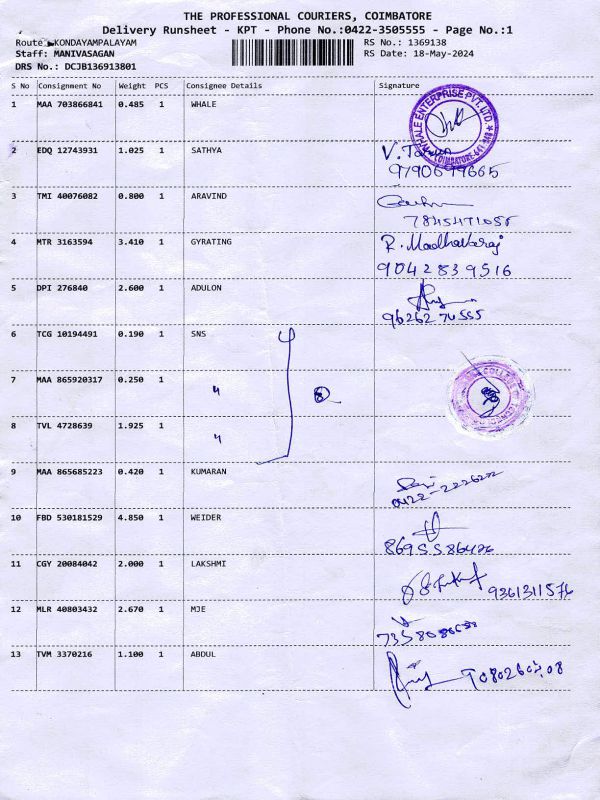 THE PROFESSIONAL COURIERS, COIMBATORE
Delivery Runsheet - KPT - Phone No.:0422-3505555 - Page No.:1
Route : KONDAYAMPALAYAM RS No.: 1369138
Staff: MANIVASAGAN RS Date: 18-May-2024
DRS No.: DCJB136913801
S No Consignment No Weight PCS Consignee Details Signature
1 MAA 703866841 0.485 1 WHALE
WHALE ENTERPRISE PVT. LTD
COIMBATORE-641
2 EDQ 12743931 1.025 1 SATHYA
9790699665
3 TMI 40076082 0.800 1 ARAVIND
4 MTR 3163594 3.410 1 GYRATING R. Madhavaraj
9042839516
5 DPI 276840 2.600 1 ADULON
9626274555
6 TCG 10194491 0.190 1 SNS
7 MAA 865920317 0.250 1 "
COLLEGE
8 TVL 4728639 1.925 1 "
9 MAA 865685223 0.420 1 KUMARAN
0422-222622
10 FBD 530181529 4.850 1 WEIDER
11 CGY 20084042 2.000 1 LAKSHMI 9361311576
12 MLR 40803432 2.670 1 MJE
13 TVM 3370216 1.100 1 ABDUL